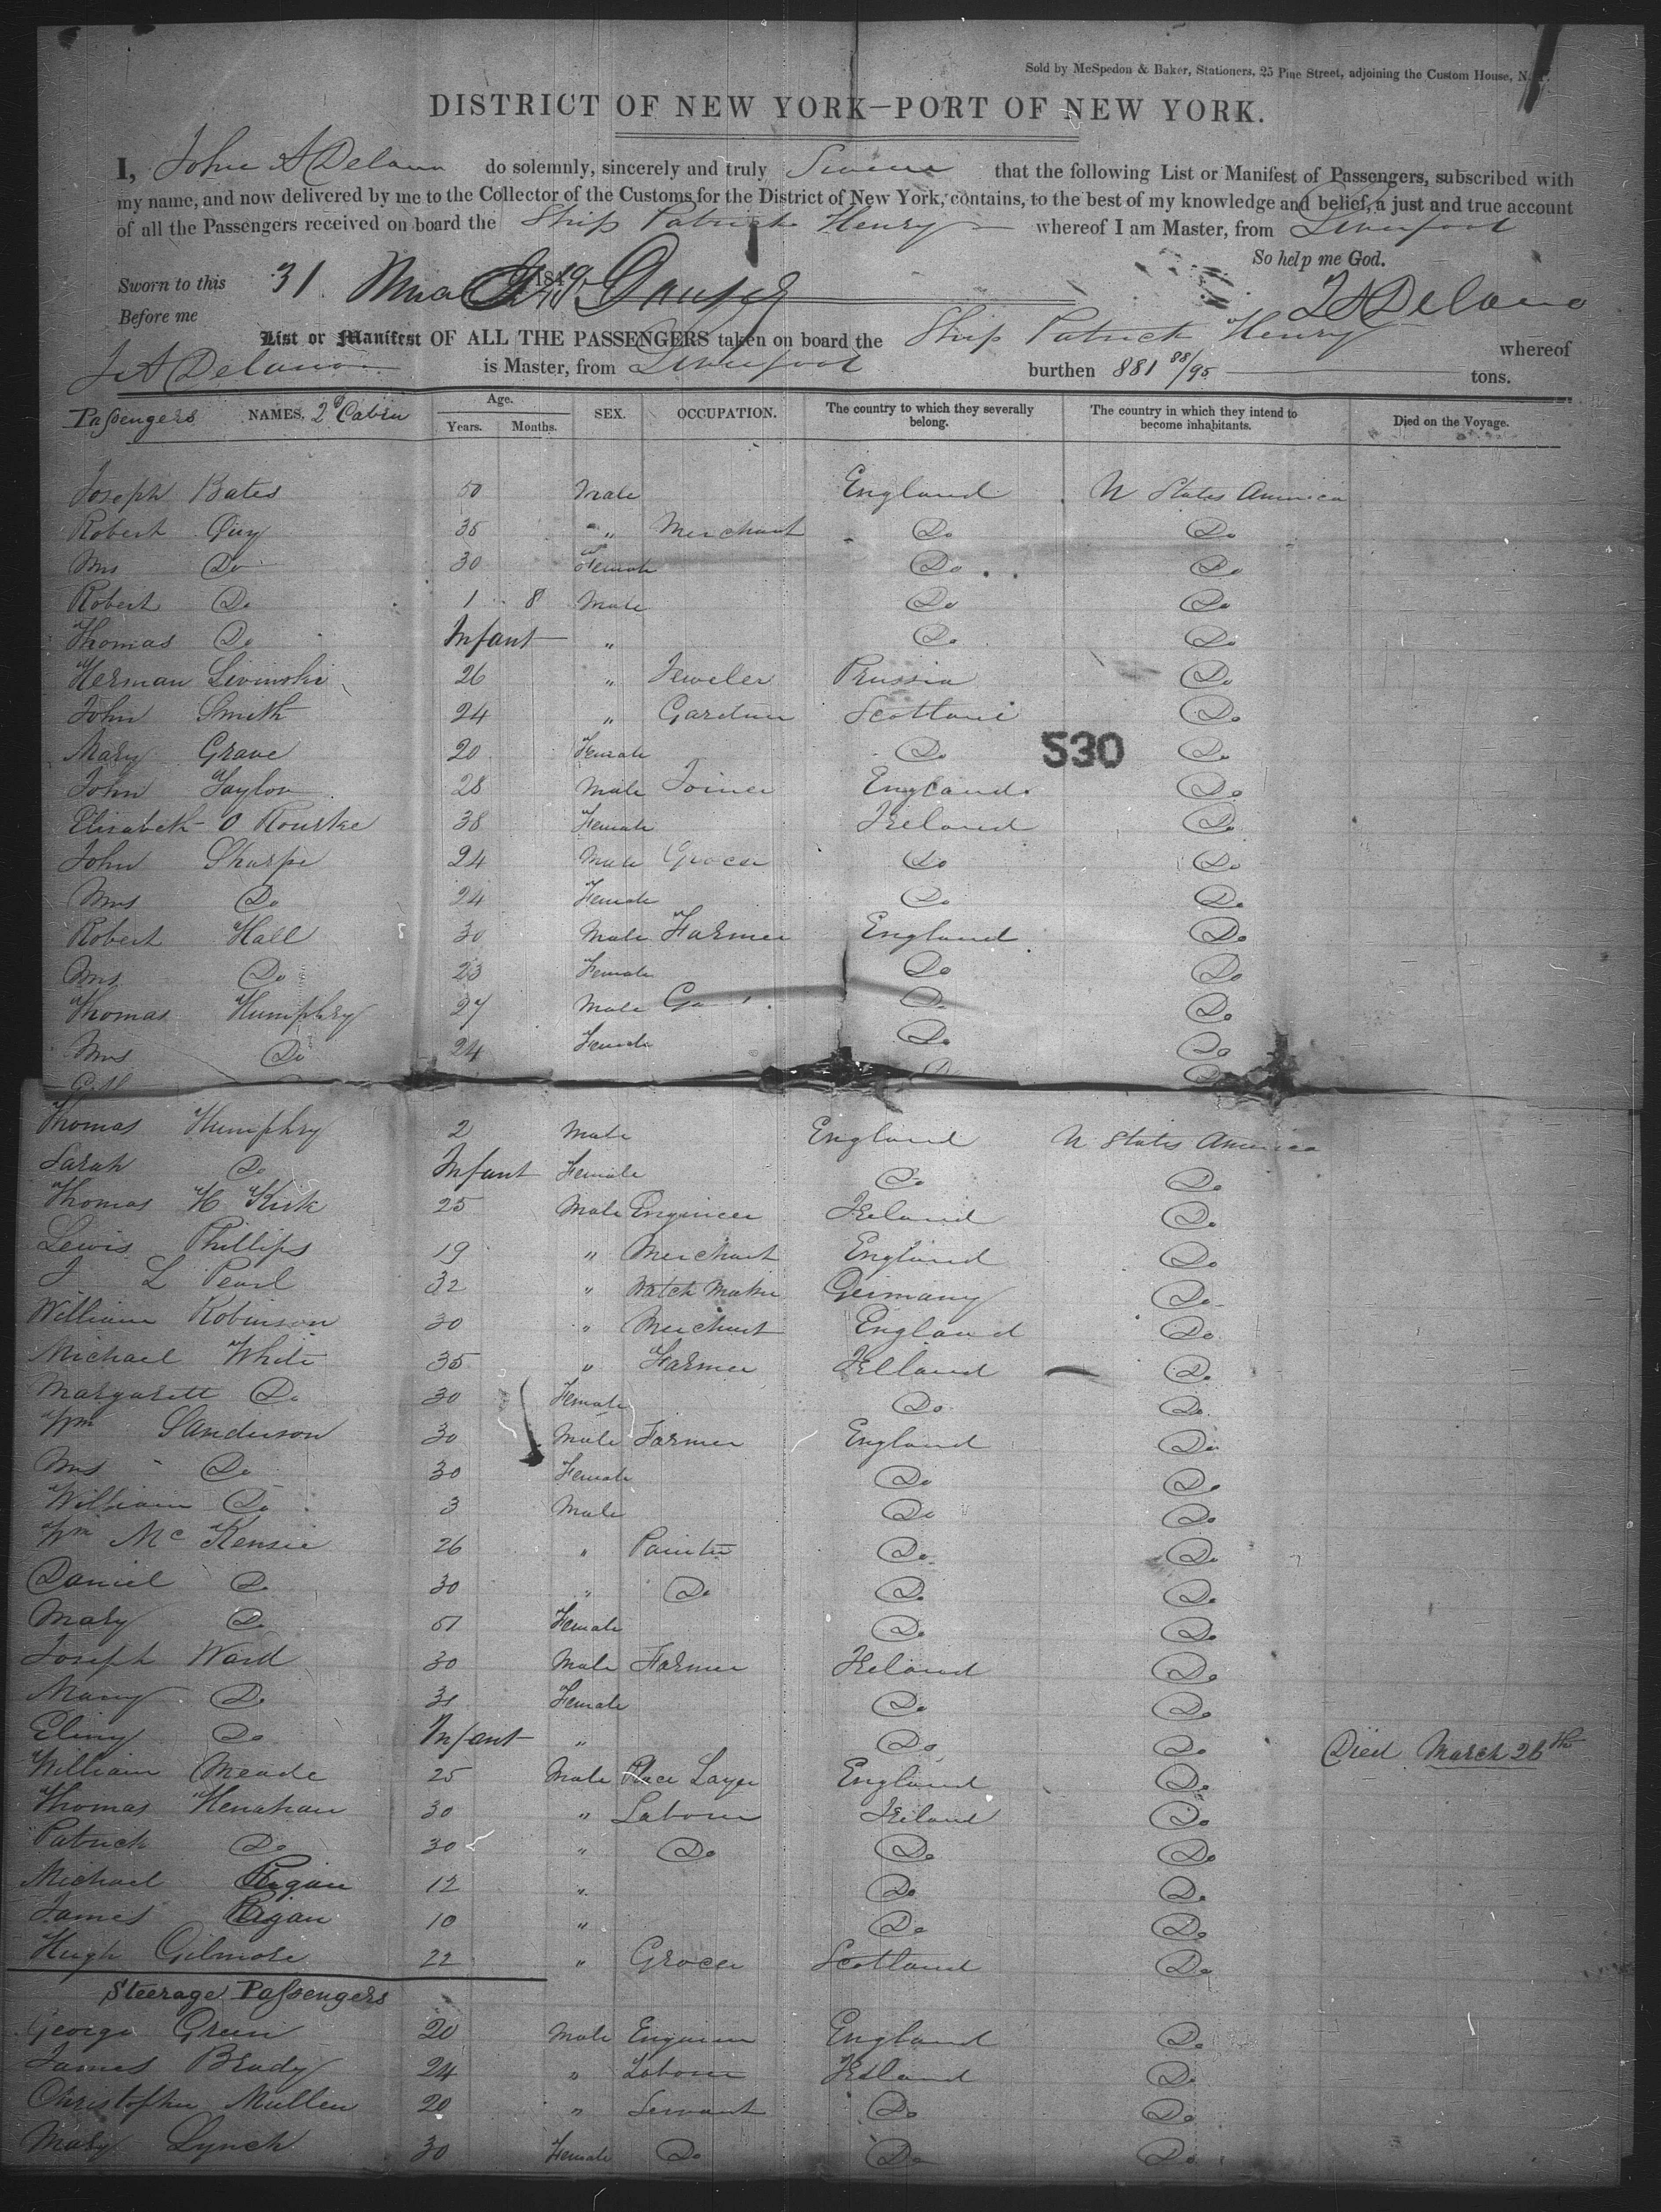 Sold by McSpedon & Baker, Stationers, 25 Pine Street, adjoining the Custom House, N. Y.
DISTRICT OF NEW YORK—PORT OF NEW YORK.
I, John A Delano do solemnly, sincerely and truly Swear that the following List or Manifest of Passengers, subscribed with
my name, and now delivered by me to the Collector of the Customs for the District of New York, contains, to the best of my knowledge and belief, a just and true account
of all the Passengers received on board the Ship Patrick Henry whereof I am Master, from Liverpool
So help me God.
Sworn to this 31
J A Delano
Before me
List or Manifest OF ALL THE PASSENGERS taken on board the Ship Patrick Henry whereof
J A Delano is Master, from Liverpool burthen 881 88/95 tons.
Passengers NAMES. 2d Cabin Age. Years. Months. SEX. OCCUPATION. The country to which they severally belong. The country in which they intend to become inhabitants. Died on the Voyage.
Joseph Bates 50 Male England U States America
Robert Guy 35 " Merchant Do Do
Mrs Do 30 Female Do Do
Robert Do 1 8 Male Do Do
Thomas Do Infant " Do Do
Herman Levinski 26 " Jeweler Prussia Do
John Smith 24 " Gardner Scotland Do
530
Mary Grave 20 Female Do Do
John Taylor 28 Male Joiner England Do
Elisabeth O Rourke 38 Female Ireland Do
John Sharpe 24 Male Grocer Do Do
Mrs Do 24 Female Do Do
Robert Hall 30 Male Farmer England Do
Mrs Do 23 Female Do Do
Thomas Humphry 27 Male Do Do
Mrs Do 24 Female Do Do
Thomas Humphry 2 Male England U States America
Sarah Do Infant Female Do Do
Thomas H Kirk 25 Male Engineer Ireland Do
Lewis Phillips 19 " Merchant England Do
J L Pearl 32 " Watch Maker Germany Do
William Robinson 30 " Merchant England Do
Michael White 35 " Farmer Ireland Do
Margarett Do 30 Female Do Do
Wm Sanderson 30 Male Farmer England Do
Mrs Do 30 Female Do Do
William Do 3 Male Do Do
Wm Mc Kensie 26 " Painter Do Do
Daniel Do 30 " Do Do Do
Mary Do 51 Female Do Do
Joseph Ward 30 Male Farmer Ireland Do
Mary Do 31 Female Do Do
Eliny Do Infant " Do Do Died March 26th
William Meade 25 Male Place Layer England Do
Thomas Henahan 30 " Labourer Ireland Do
Patrick Do 30 " Do Do Do
Michael Rigan 12 " Do Do
James Rigan 10 " Do Do
Hugh Gilmore 22 " Grocer Scotland Do
Steerage Passengers
George Green 20 Male Engineer England Do
James Brady 24 " Labourer Ireland Do
Christopher Mullen 20 " Servant Do Do
Mary Lynch 30 Female Do Do Do